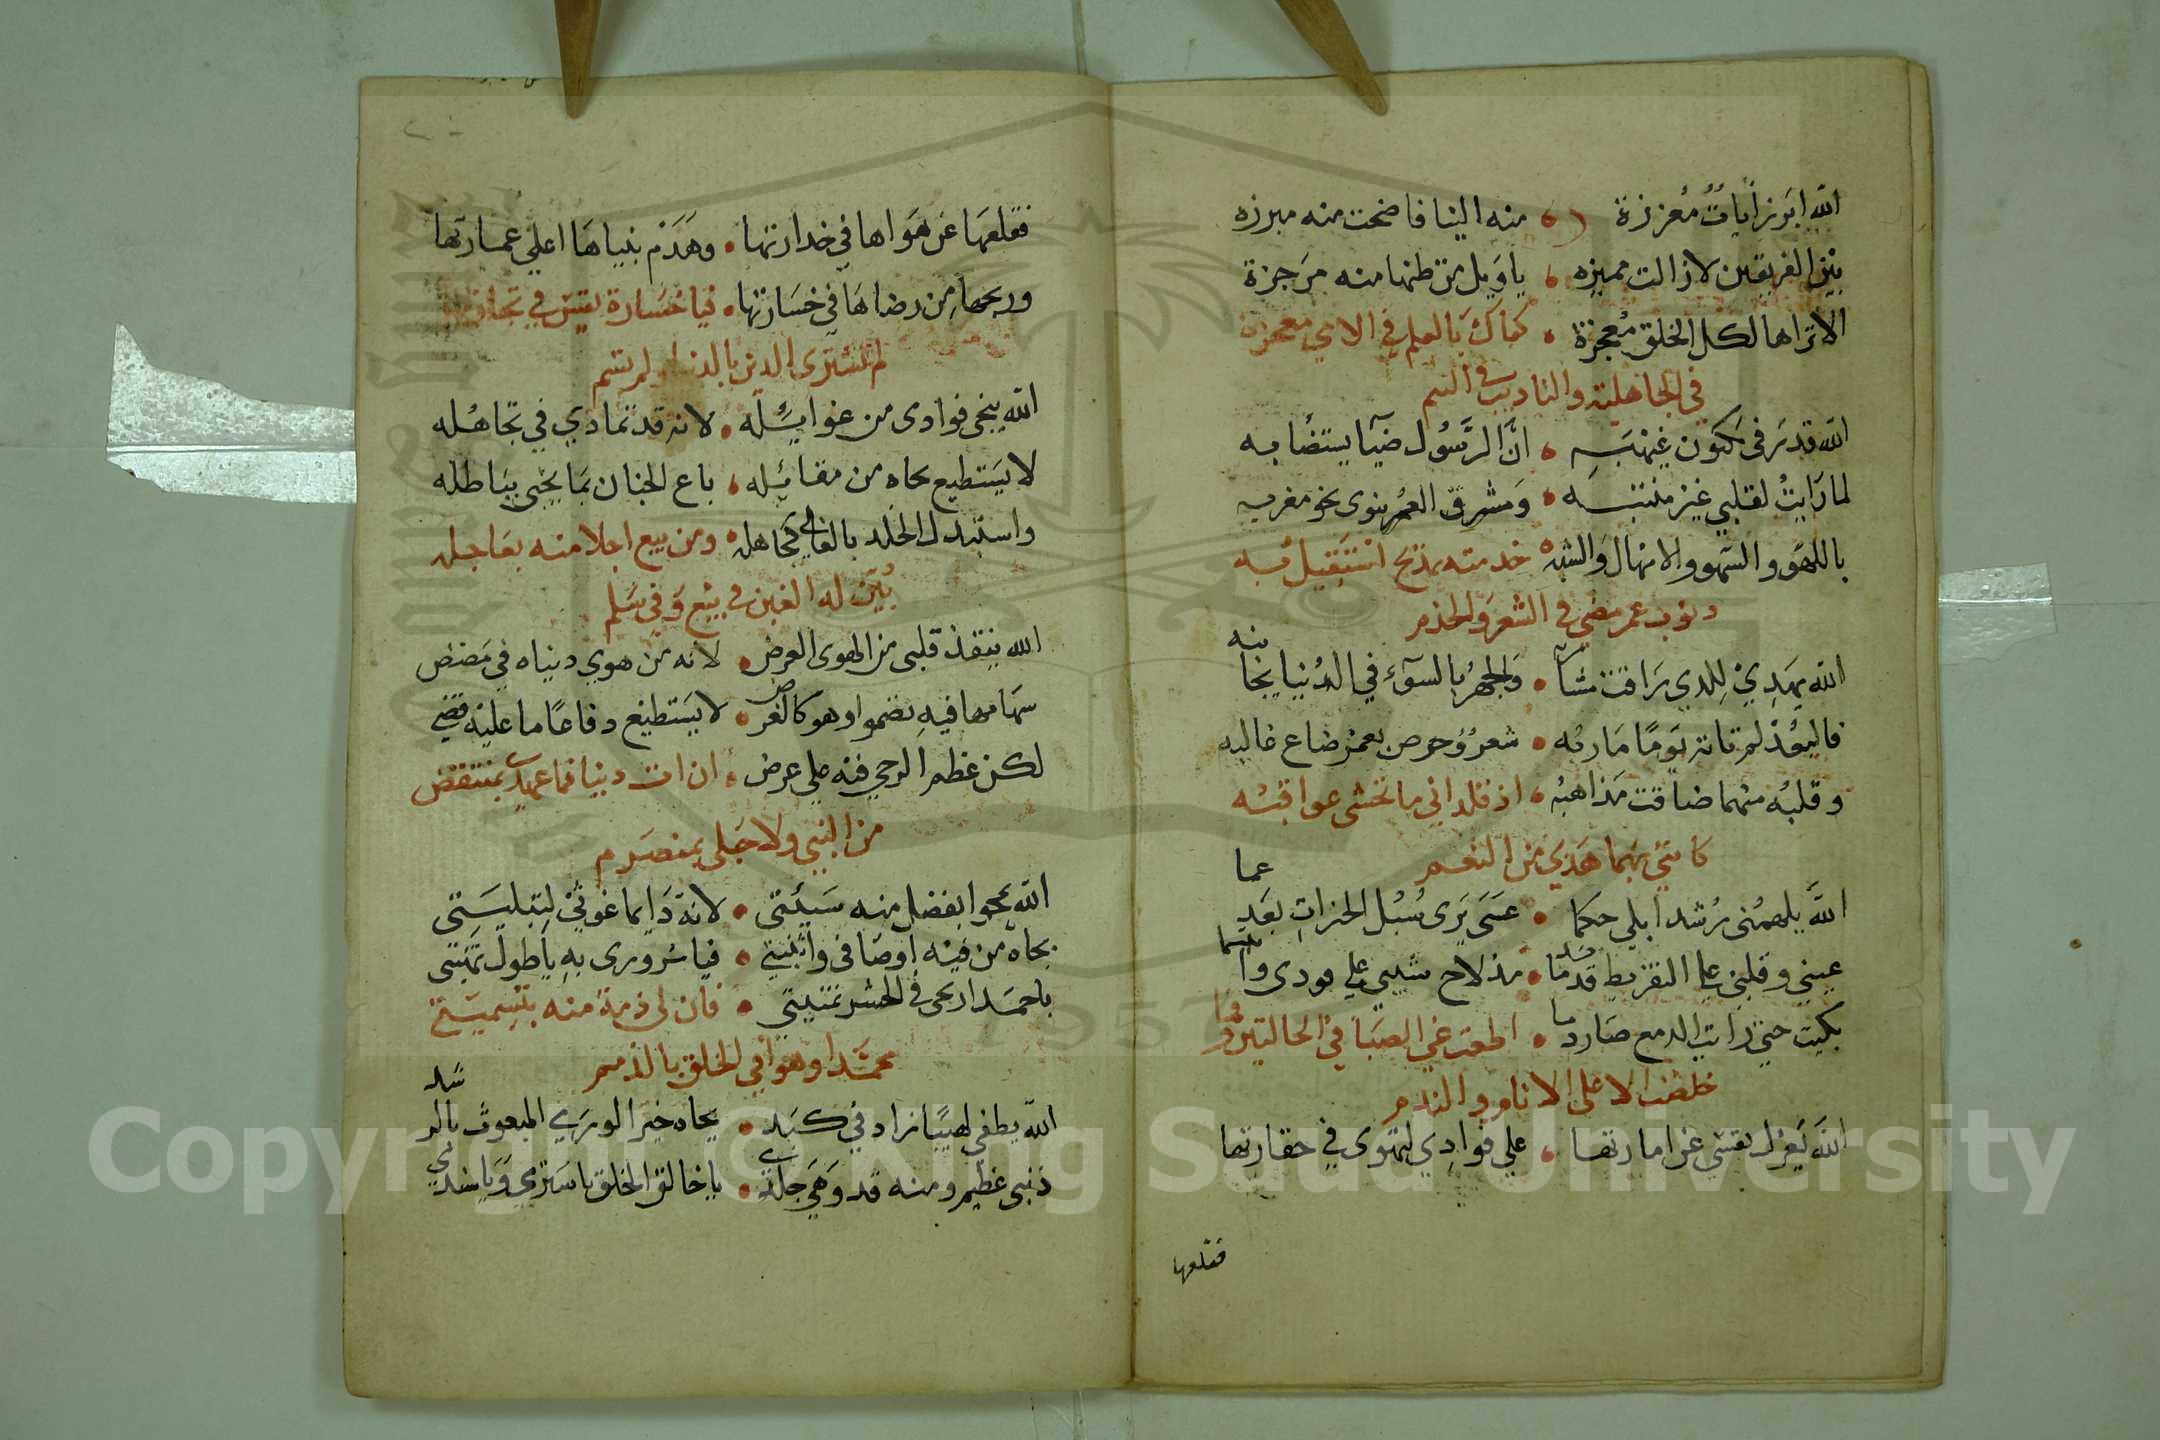 الله ابرز ايات معززة ، منه الينا فاضحت منه مبرزه
بين الفريقين لازالت مميزه ، ياويل من ظنها منه مرجزة
الا تراها لكل الخلق معجزة ، كفاك بالعلم في الامي معجزة
في الجاهلية والتاديب في اليتم
الله قد في مكنون غيهبه ، ان الرسول ضيآ يستضا به
لما رايت لقلبي غير منتبه ، ومشرق العمر ينوي نحو مغربه
باللهو والسهو والانهال والشبه خدمته بمديح استقيل به
ذنوب عمر مضي في الشعر والخدم
الله يهدي للذي راقت مشاربه ، والجهر بالسوء في الدنيا يجانبه
فاليعذ لم تاته يوما ماربه ، شعر وحرص بعمر ضاع غالبه
وقلبه منهما ضاقت مذاهبه ، اذ قلداني ما تخشى عواقبه
كانني بهما هدي من النعم
الله يلهمني رشدا يلي حكما ، عسى يرى سبل الخيرات بعد عما
عيني وقلبي على التفريط قد ندما ، مذ لاح شيبي على فودي وابتسما
بكيت حتي رايت الدمع صار دما ، اطعت غي الصبا في الحالتين وما
حلصت الا على الاثام والندم
الله يعزل نفسي عن امارتها ، علي فوادي لتهوى في حقارتها
فقلعها
فقلعها عن هواها في خدارتها ، وهدم بنياها اعلي عمارتها
وربحها من رضاها في خسارتها ، فيا خسارة نفس في تجارتها
لم تشترى الدين بالدنيا ولم تسم
الله ينجي فوادى من غوايئله ، لانه قد تمادي في تجاهله
لا يستطيع نجاه من مقائله ، باع الجنان بما يجني بباطله
واستبدل الخلد بالفاني تجاهله ، ومن يبع اجلا منه بعاجله
يبن له الغبن في بيع وفي سلم
الله ينقذ قلبي من الهوى العرض ، لانه من هوي دنياه في مضض
سهامها فيه نضموا وهو كالغرض ، لا يستطيع دفاعا ما عليه قضي
لكن عظم الرجي فيه علي عرض ، ان ات دنيا فما عهدي بمنتقض
من النبي ولا حبلي بمنصرم
الله يمحوا بفضل منه سيئتي ، لانه دايما غوثي لتبليستي
بجاه من فيه اوصافي واثنيتي ، فيا سروري به يا طول تمنيتي
باحمد ارجي في الحشر تمنيتي ، فان لي ذمة منه بتسميتي
محمدا وهو اوفي الخلق بالذمم
الله يطفي لهيبا زاد في كبدي ، بجاه خير الوري المبعوث بالرشد
ذنبي عظيم ومنه قد وهي جلدي ، يا خالق الخلق يا ستري ويا سندي